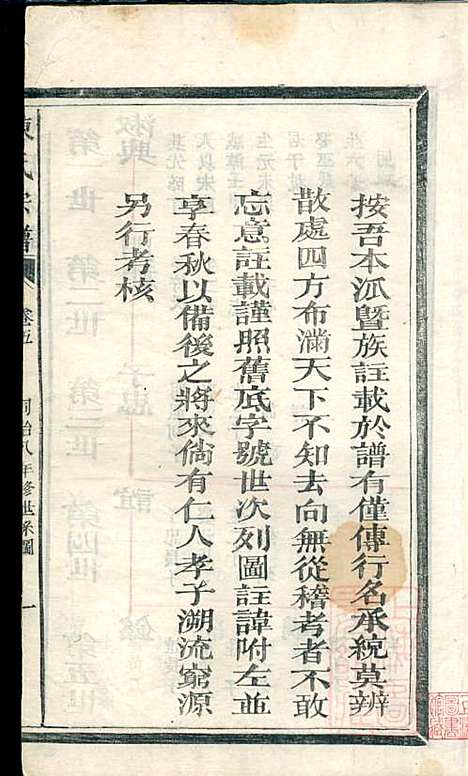 按吾本派暨族註載於譜有僅傳行名承統莫辨
散處四方布滿天下不知去向無從稽考者不敢
忘意註載謹照舊底字號世次列圖註諱附左並
享春秋以備後之將來倘有仁人孝子溯流窮源
另行考核
陳氏宗譜 卷五 同治八年修世系圖 一